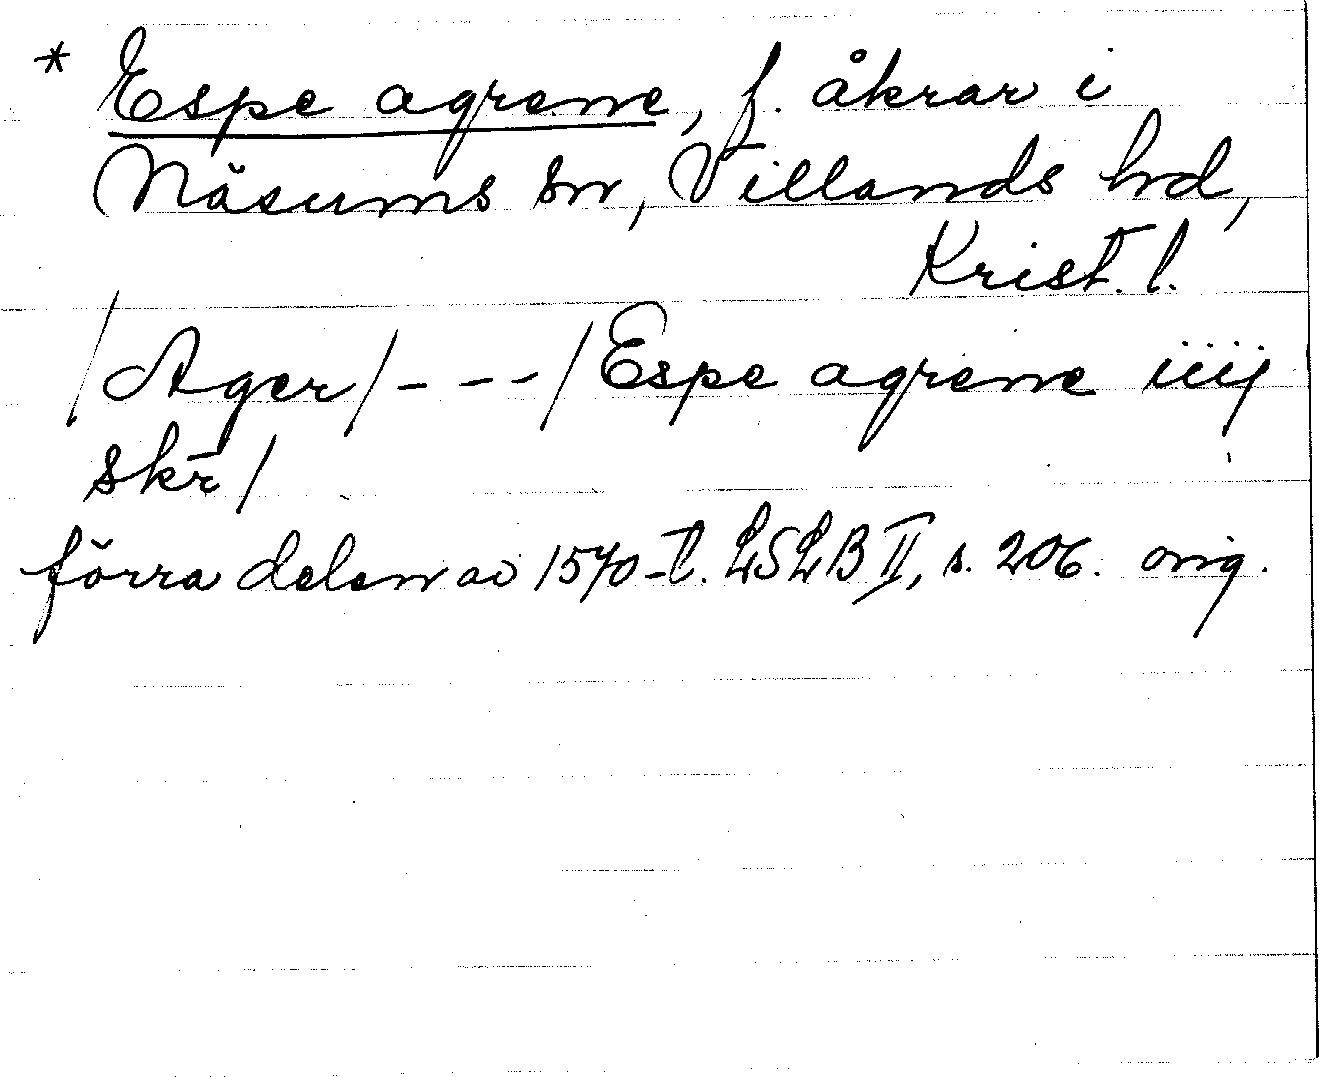 * Espe agrene, f. åkrar i
Näsums sn, Villands hd,
Krist. l.
/Ager/---/Espe agrene iiij
skr̄/
förra delen av 1570-t. LSLB II, s. 206. orig.